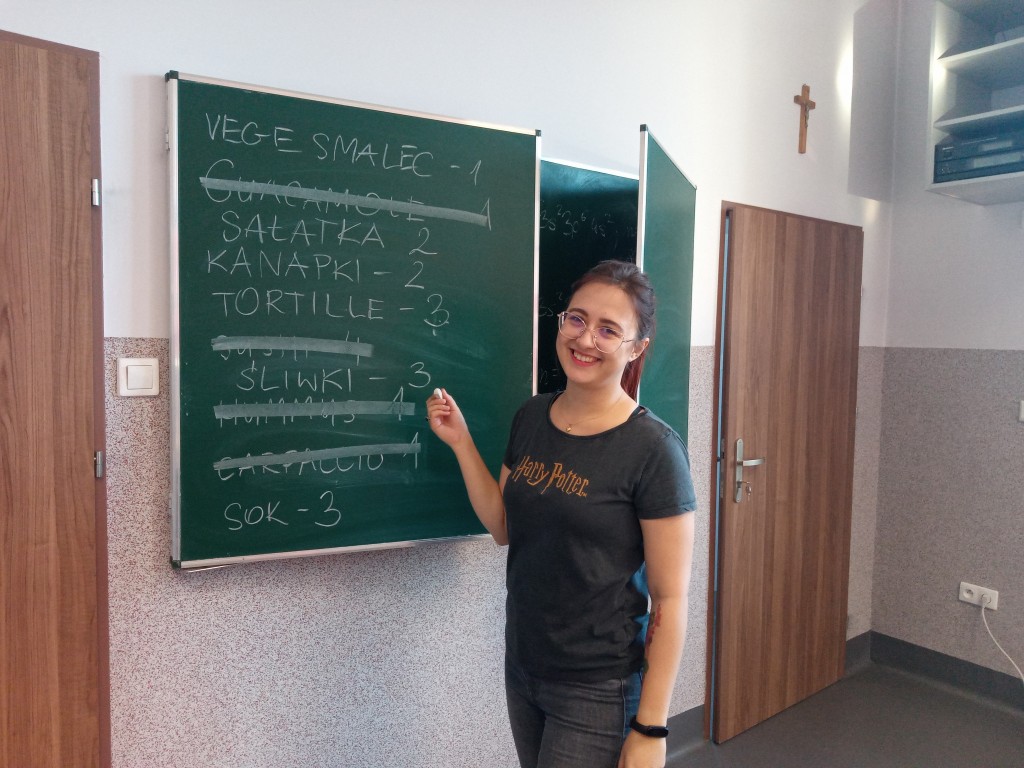 VEGE SMALEC - 1
GUACAMOLE 1
SAŁATKA 2
KANAPKI - 2
TORTILLE - 3
ŚLIWKI - 3
HUMMUS 1
CARPACCIO 1
SOK - 3
Harry Potter